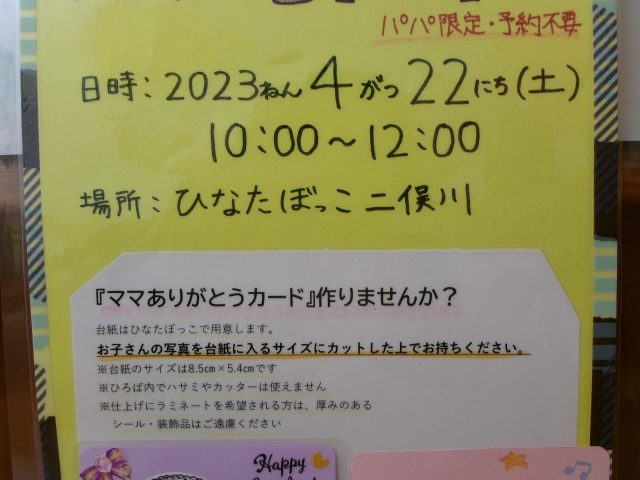 パパ限定・予約不要
日時：2023ねん4がつ22にち(土)
10:00～12:00
場所：ひなたぼっこ二俣川
『ママありがとうカード』作りませんか？
台紙はひなたぼっこで用意します。
お子さんの写真を台紙に入るサイズにカットした上でお持ちください。
※台紙のサイズは8.5㎝×5.4㎝です
※ひろば内でハサミやカッターは使えません
※仕上げにラミネートを希望される方は、厚みのある
シール・装飾品はご遠慮ください
Happy